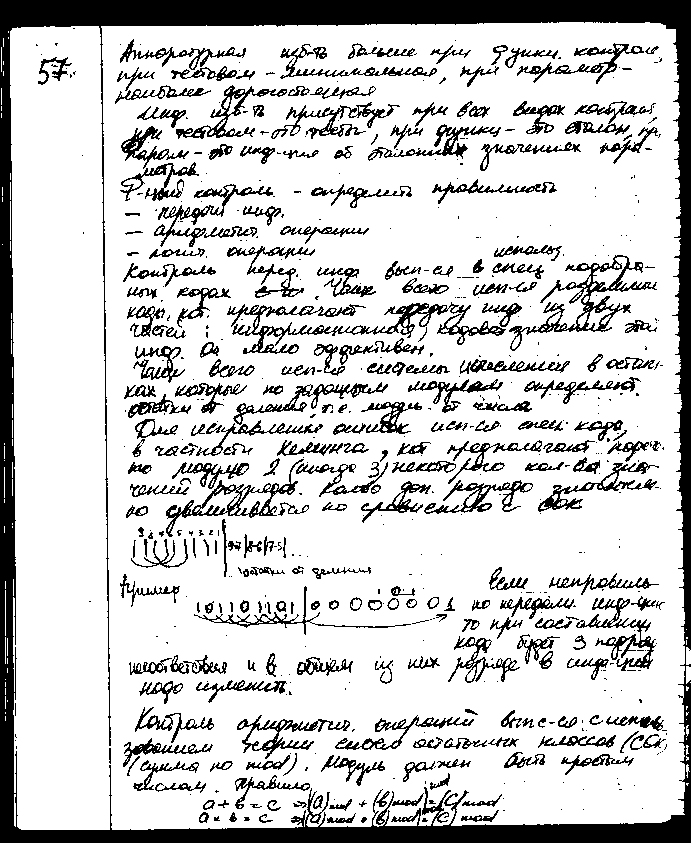 57.
Аппаратурная изб-ть больше при функц. контроле,
при тестовом - минимальная, при парамотр-
наиболее дорогостоящая
Инф. изб-ть присутствует при всех видах контроля,
при тестовом - это тесты, при функц - это эталон, пр.
парам - это инф-ция об эталонных значениях пара-
метров.
Ф-ный контроль - определить правильность
- передачи инф.
- арифметич. операции
- логич. операции
использ.
Контроль перед. инф. вып-ся в спец подобра-
ных кодах Чаще всего исп-ся разделимые
коды, кот. предполагают передачу инф из двух
частей: информационная, кодовое значение этой
инф. Он мало эффективен.
Чаще всего исп-ся системы исчесления в остат-
ках, которые по заданным модулям определяют
остатки от деления, т.е. модуль от числа
Для исправления ошибок исп-ся спец кода,
в частности Хеминга, кот предполагают
по модулю 2 (иногда 3) некоторого кол-ва зна-
чений разрядов. Кол-во доп. разрядо
но увеличивается по сравнению с СОК
остатки от деления
Пример
10110101 0000000 1
Если неправиль-
но передали инф-цию
то при составлении
кода будет 3
несоответствия и в общем из них разряде в инф-ции
надо изменить.
Контроль арифметич. операций вып-ся с исполь-
зованием теории остаточных классов (СОК)
(сумма по mod). Модуль должен быть простым
числом. Правила
a + b = c => (a)mod + (b)mod = (c)mod